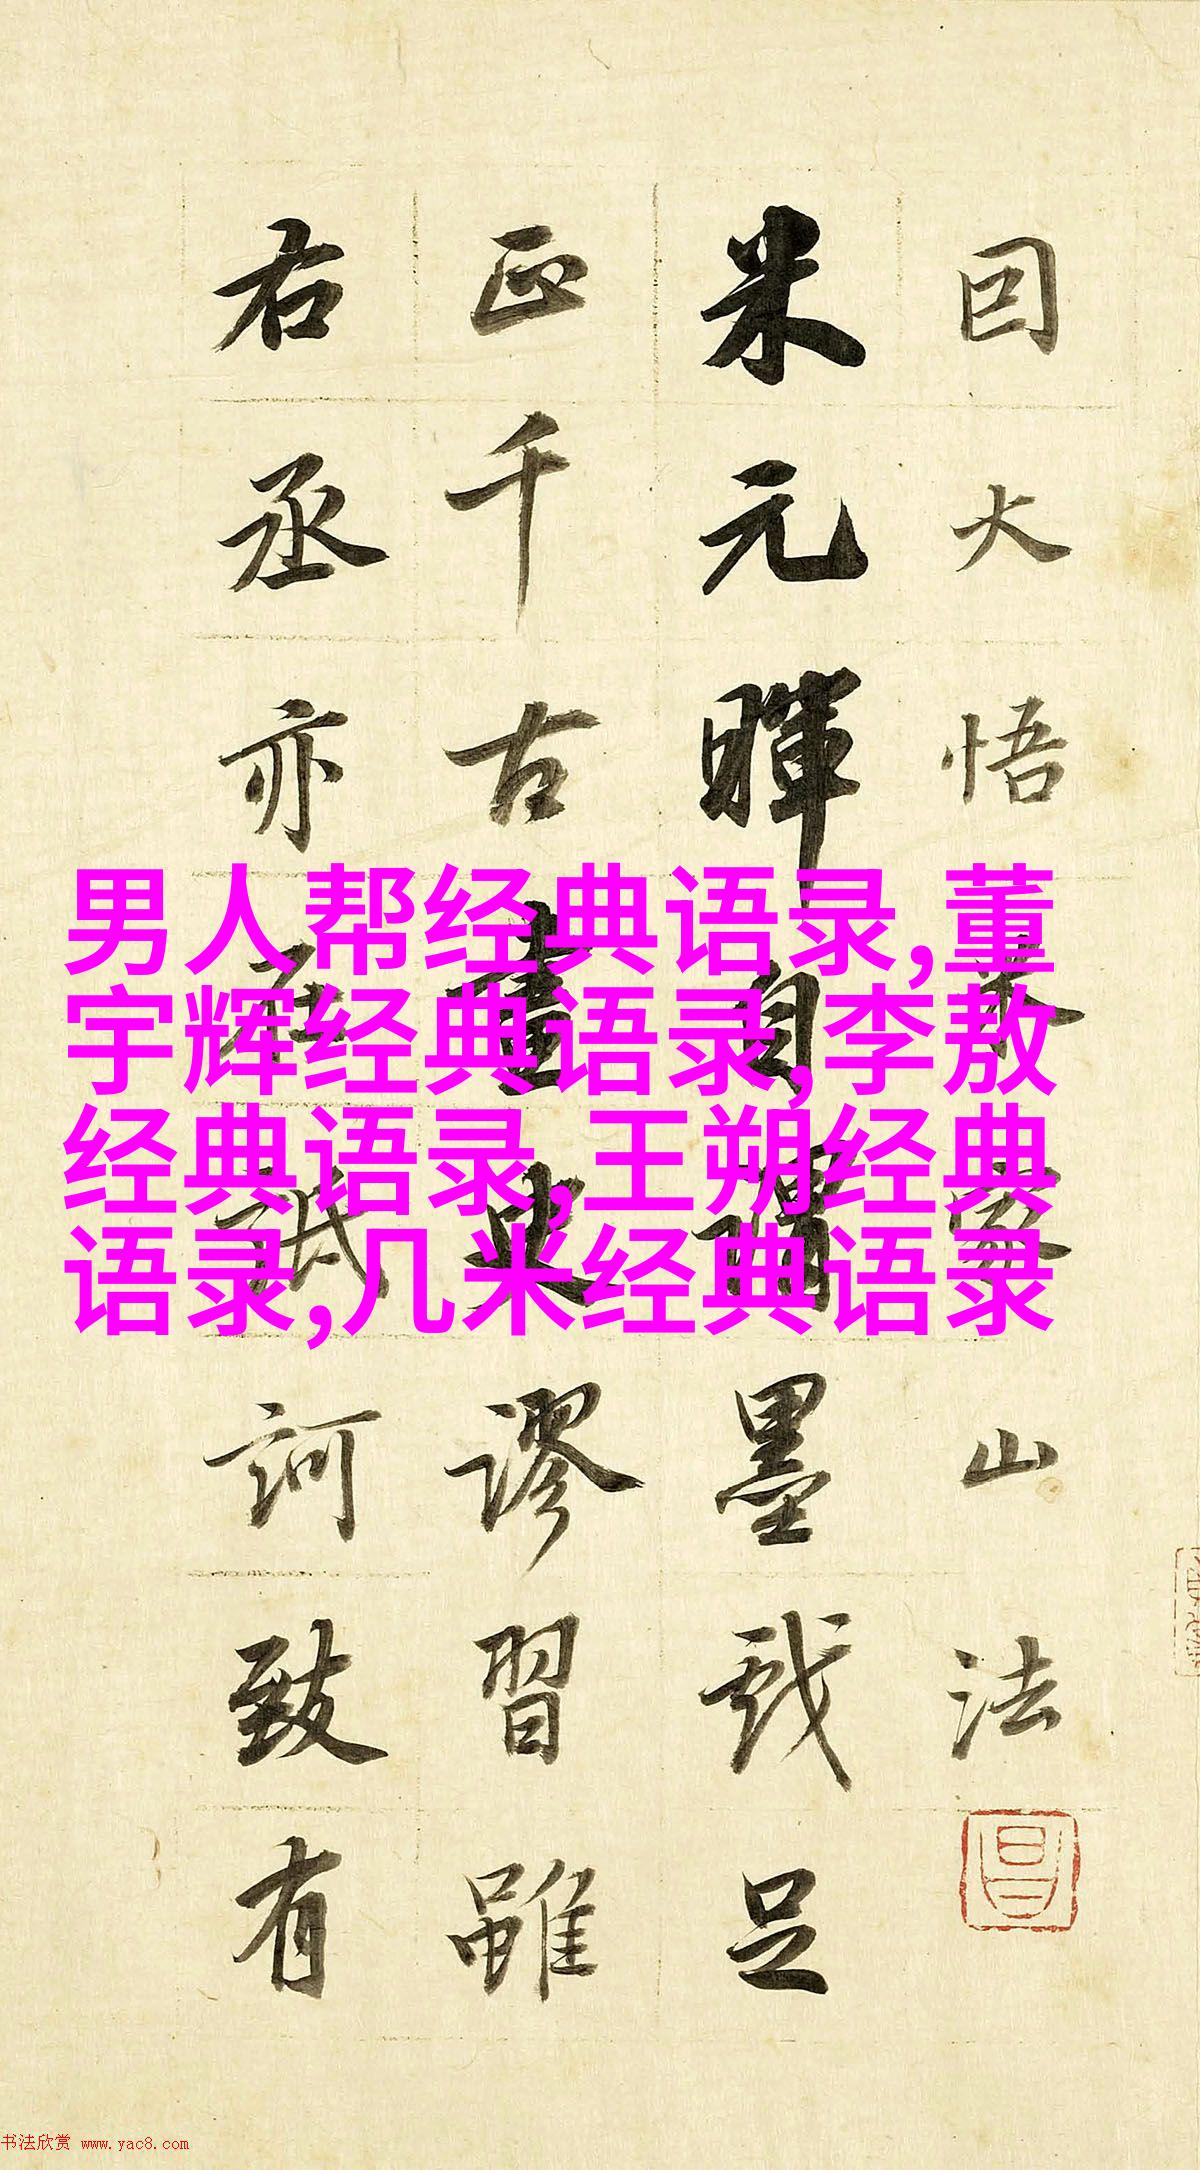 因大悟米家山法
米元暉自謂墨戲足
正千古畫史謬習雖
右丞亦在詆訶致有
男人帮经典语录,董
宇辉经典语录,李敖
经典语录,王朔经典
语录,几米经典语录
书法欣赏 www.yac8.com